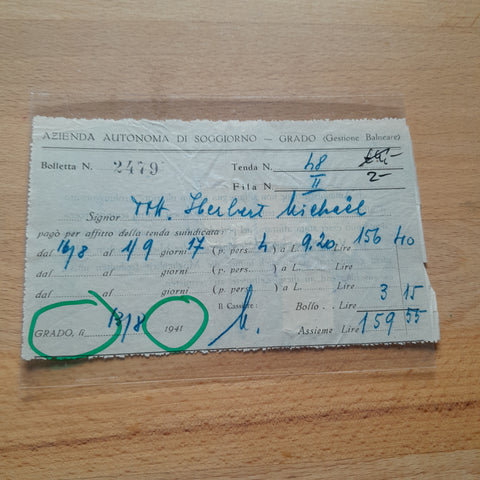 AZIENDA AUTONOMA DI SOGGIORNO — GRADO (Gestione Balneare)
Bolletta N. 2479 Tenda N. 48
Fila N. II 2-
Signor Herbert Michaël
pagò per affitto della tenda suindicata:
dal 16/8 al 1/9 giorni 17 (p. pers. 4 ) a L. 9.20 Lire 156 40
dal al giorni (p. pers. ) a L. Lire
dal al giorni (p. pers. ) a L. Lire
Il Cassiere: Bollo Lire 3 15
GRADO, lì 18/8 1941 Assieme Lire 159 55